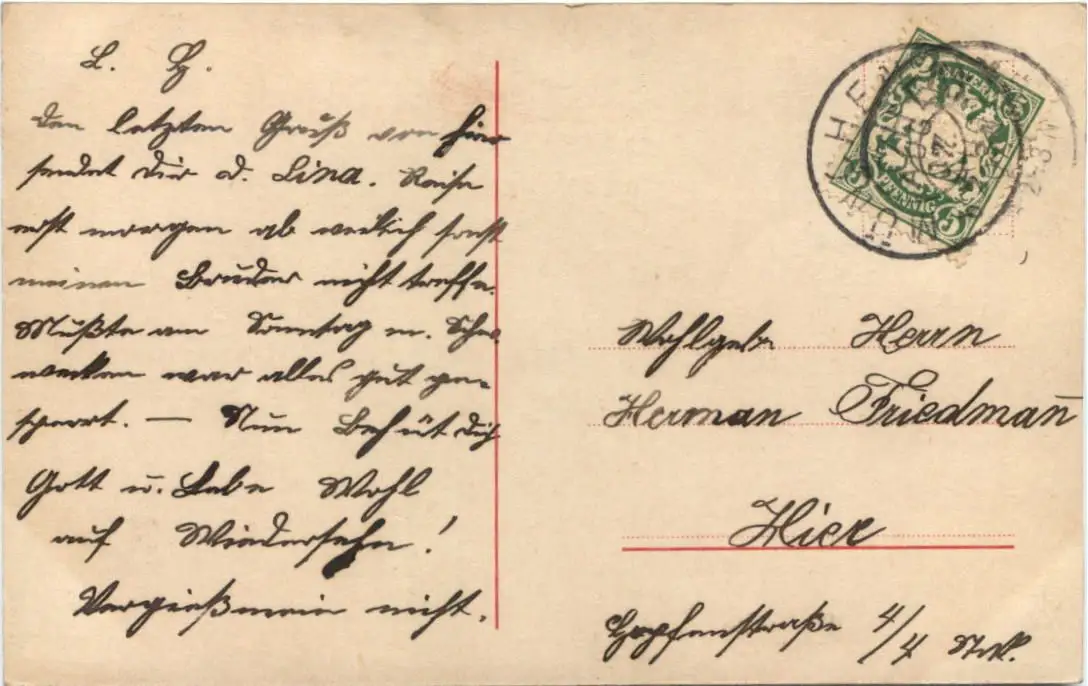 L. H.
den letzten Gruß von hier
sendet dir d. Lina. Reise
erst morgen ab weil ich sonst
meinen Bruder nicht treffe.
Mußte am Sonntag m.
war alles gut ge-
sperrt. — Nun Behüt dich
Gott u. Lebe Wohl
auf Wiedersehn!
Vergießmein nicht.
BAYERN
5
PFENNIG
MÜNCHEN
Wohlgeb. Herrn
Herman Friedman̄
Hier
Hopfenstraße 4/4 Stck.